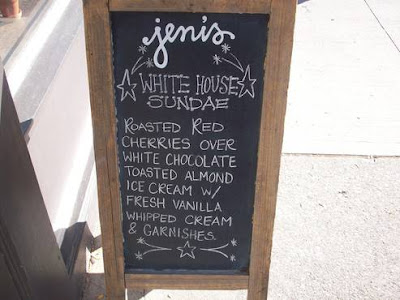 jeni's
WHITE HOUSE
SUNDAE
ROASTED RED
CHERRIES OVER
WHITE CHOCOLATE
TOASTED ALMOND
ICE CREAM W/
FRESH VANILLA
WHIPPED CREAM
& GARNISHES.